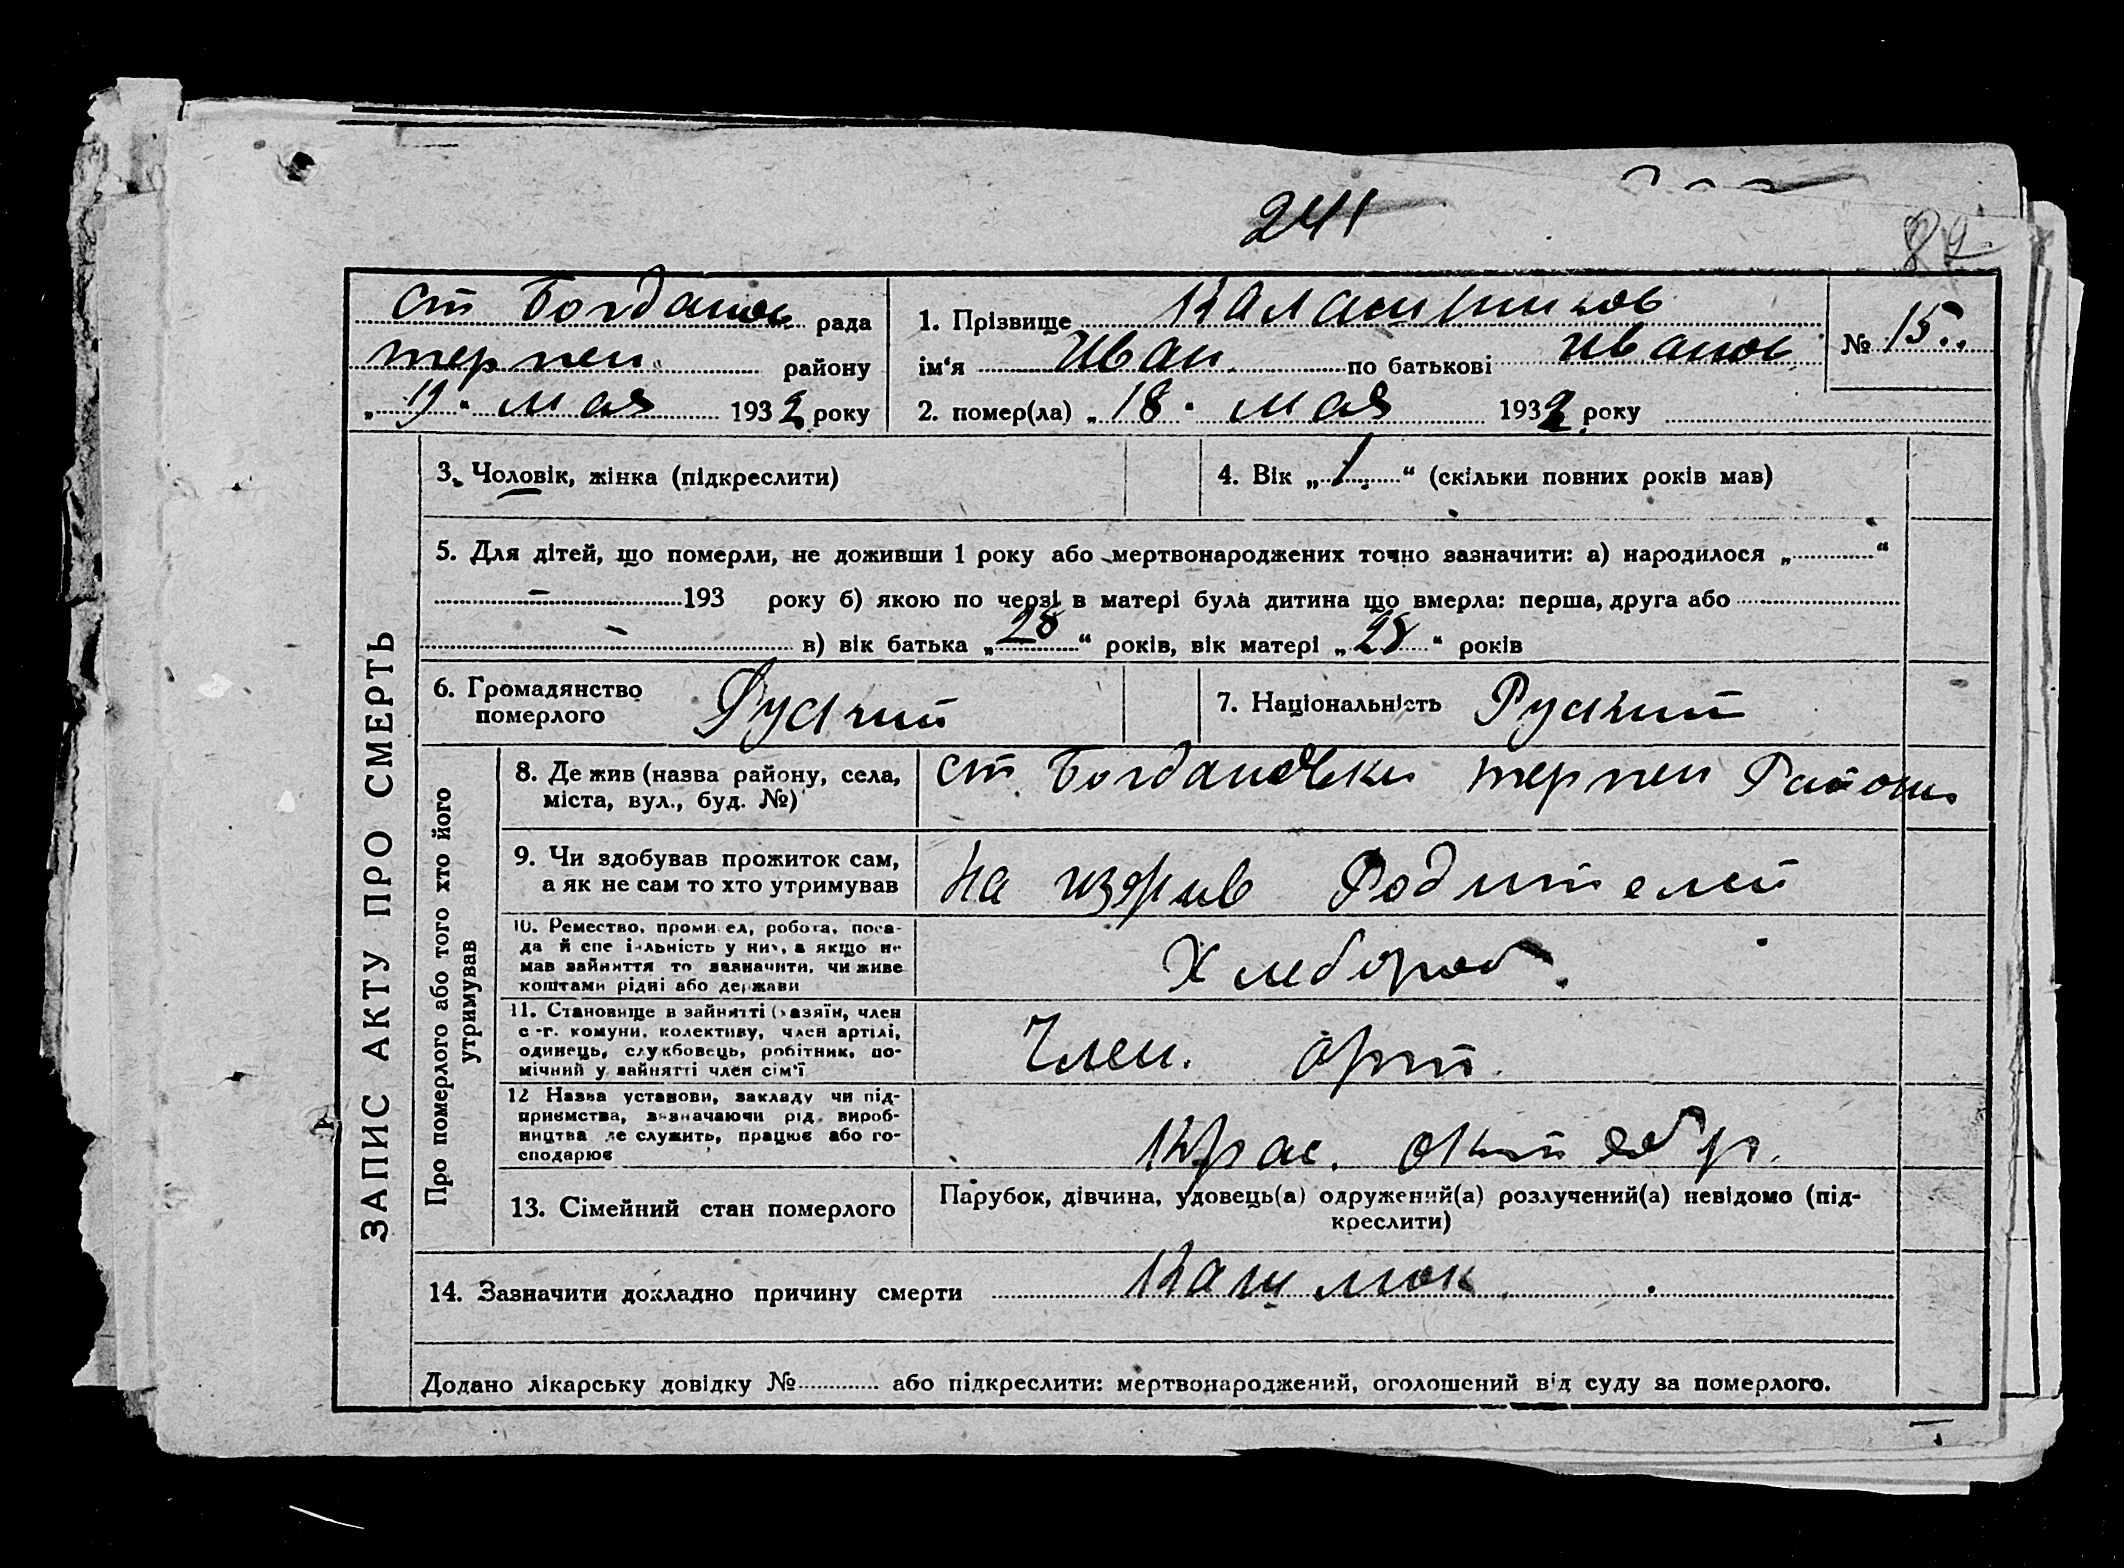 241
82
ст Богданов рада
терпен району
„ 19 “ мая 1932 року
1. Прізвище Калашников
ім'я Иван по батькові Иванов
2. помер(ла) „ 18 “ мая 1932 року
№ 15
ЗАПИС АКТУ ПРО СМЕРТЬ
3. Чоловік, жінка (підкреслити)
4. Вік „ 1 “ (скільки повних років мав)
5. Для дітей, що померли, не доживши 1 року або мертвонароджених точно зазначити: а) народилося „ “
– 193 року б) якою по черзі в матері була дитина що вмерла: перша, друга або
– в) вік батька „ 28 “ років, вік матері „ 28 “ років
6. Громадянство
померлого
Руский
7. Національність Руский
Про померлого або того хто його
утримував
8. Де жив (назва району, села,
міста, вул., буд. №)
ст Богдановки терпен Района
9. Чи здобував прожиток сам,
а як не сам то хто утримував
На иждив Родителей
10. Ремество, промисел, робота, поса-
да й спеціяльність у них, а якщо не
мав зайняття то зазначити, чи живе
коштами рідні або держави
Хлебороб.
11. Становище в зайнятті (хазяїн, член
с.-г. комуни, колективу, член артілі,
одинець, службовець, робітник, по-
мічний у зайнятті член сім'ї
Член. арт.
12 Назва установи, закладу чи під-
приємства, зазначаючи рід вироб-
ництва де служить, працює або го-
сподарює
Крас. октябр.
13. Сімейний стан померлого
Парубок, дівчина, удовець(а) одружений(а) розлучений(а) невідомо (під-
креслити)
14. Зазначити докладно причину смерти Кашлюк
Додано лікарську довідку № або підкреслити: мертвонароджений, оголошений від суду за померлого.